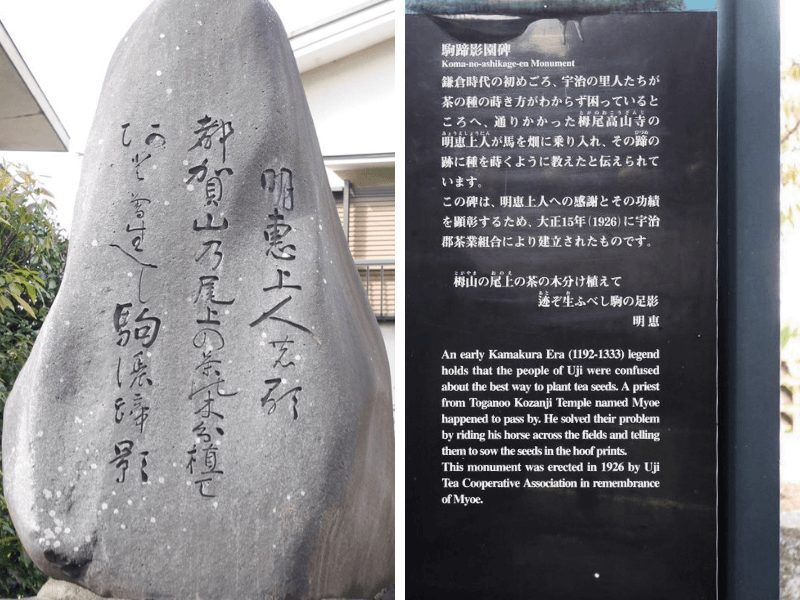 明惠上人
都賀山乃尾上の茶乃木分植て
生 し 駒 蹄影
駒蹄影園碑
Koma-no-ashikage-en Monument
鎌倉時代の初めごろ、宇治の里人たちが
茶の種の蒔き方がわからず困っていると
ころへ、通りかかった栂尾高山寺の
とがのおこうざんじ
明恵上人が馬を畑に乗り入れ、その蹄の
みょうえしょうにん
ひづめ
跡に種を蒔くように教えたと伝えられて
います。
この碑は、明恵上人への感謝とその功績
を顕彰するため、大正15年(1926)に宇治
郡茶業組合により建立されたものです。
とがやま おのえ
栂山の尾上の茶の木分け植えて
あと お
迹ぞ生ふべし駒の足影
明恵
An early Kamakura Era (1192-1333) legend
holds that the people of Uji were confused
about the best way to plant tea seeds. A priest
from Toganoo Kozanji Temple named Myoe
happened to pass by. He solved their problem
by riding his horse across the fields and telling
them to sow the seeds in the hoof prints.
This monument was erected in 1926 by Uji
Tea Cooperative Association in remembrance
of Myoe.